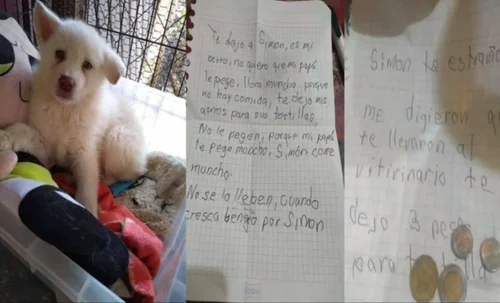 Te dejo a Simon, es mi
perro, no quiero que mi papá
le pege, llora muncho porque
no hay comida, te dejo mis
aoros para sus tortillas.
No le pegen, porque mi papá
le pega muncho, Simón come
muncho.
No se lo lleben, cuando
cresca bengo por Simon
Simon te extraño
me digieron q
te llevaron al
vitirinario te
dejo 3 pes
para